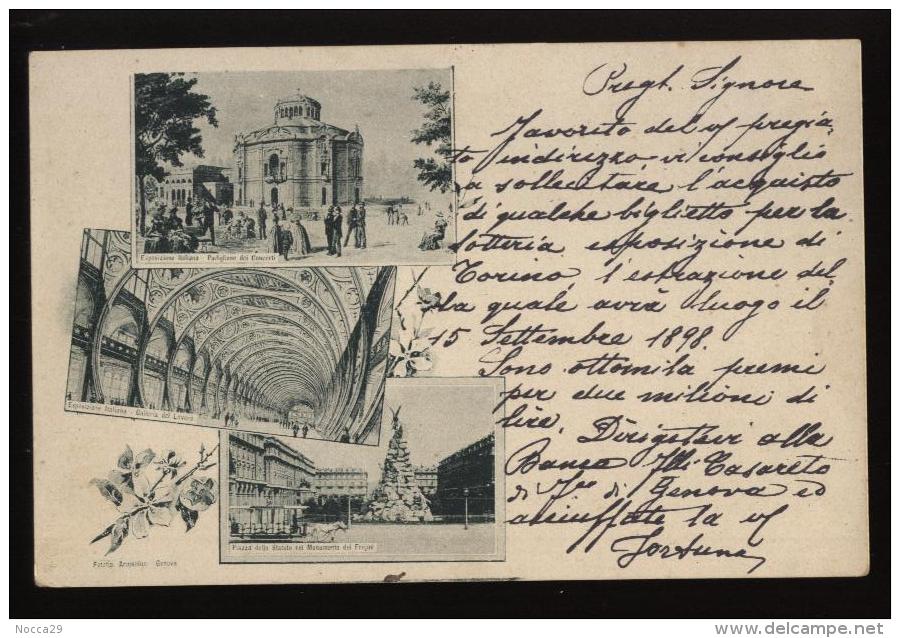 Pregt. Signore
Favorito del vs pregia
to indirizzo vi consiglio
a sollecitare l'acquisto
di qualche biglietto per la
lotteria esposizione di
Torino l'estrazione del
la quale avrà luogo il
15 Settembre 1898.
Sono ottomila premi
per due milioni di
lire. Dirigetevi alla
Banca Flli Casareto
di Fco di Genova ed
acciuffate la vs
fortuna
Esposizione Italiana - Padiglione dei Concerti
Esposizione Italiana - Galleria del Lavoro
Piazza dello Statuto col Monumento del Frejus
Fototip. Armanino Genova
Nocca29
http://www.delcampe.net